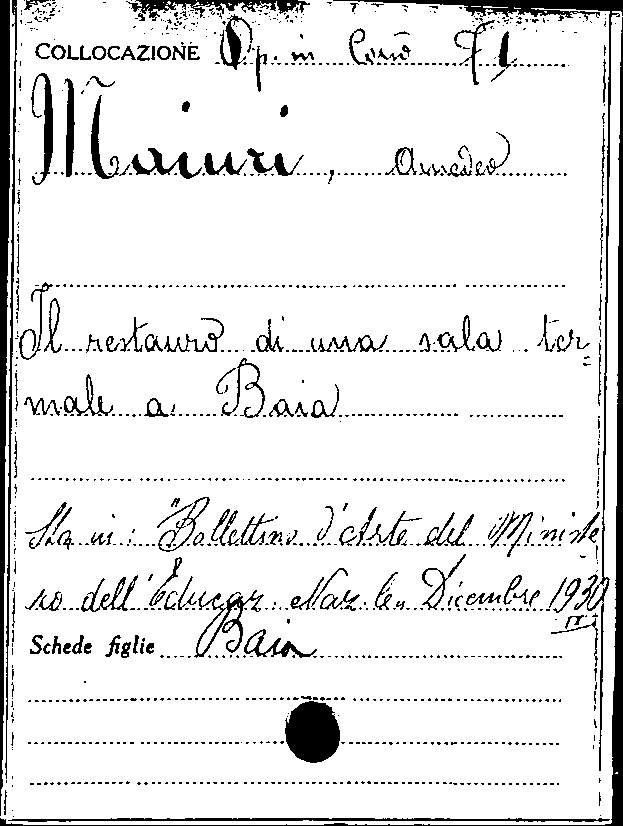 COLLOCAZIONE Op. in Cons 71
Maiuri, Amedeo
Il restauro di una sala ter=
male a Baia
Sta in: "Bollettino d'Arte del Ministe
ro dell'Educaz. Naz.le„ Dicembre 1930
Schede figlie Baia